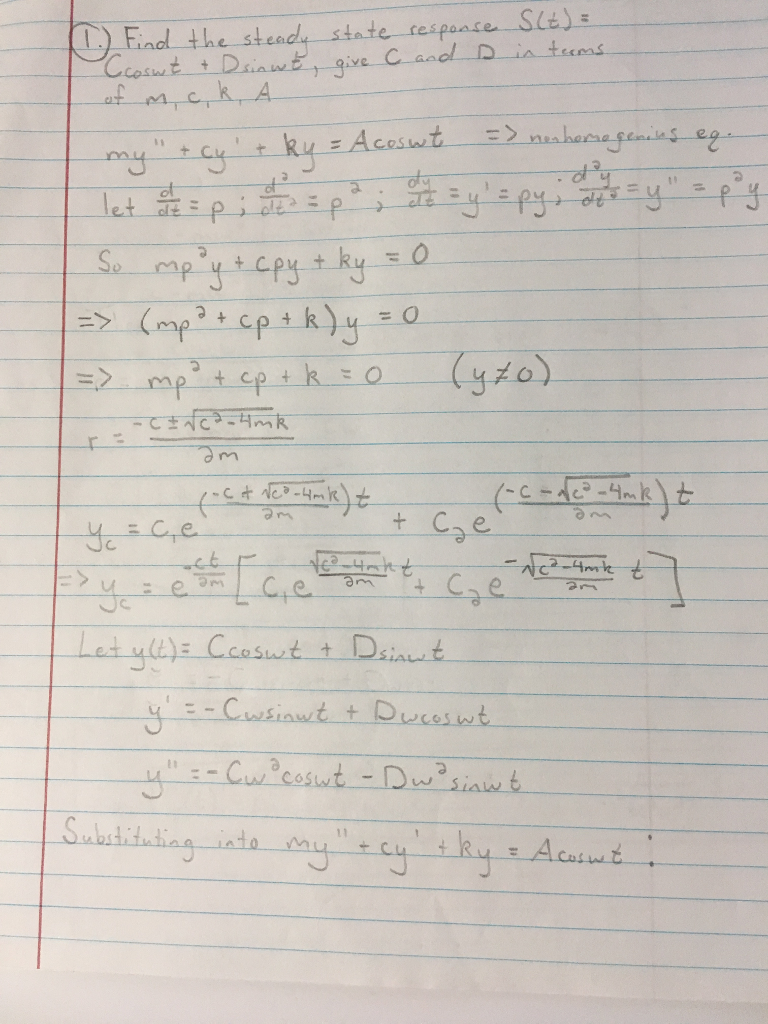 1.) Find the steady state response S(t) =
Ccoswt + Dsinwt, give C and D in terms
of m, c, k, A
my" + cy' + ky = Acoswt => nonhomogenius eq.
let d/dt = p ; d²/dt² = p² ; dy/dt = y' = py ; d²y/dt² = y" = p²y
So mp²y + cpy + ky = 0
=> (mp² + cp + k)y = 0
=> mp² + cp + k = 0 (y ≠ 0)
r = (-c ± √(c²-4mk))/2m
y_c = c₁e^((-c + √(c²-4mk))/2m)t + c₂e^((-c - √(c²-4mk))/2m)t
=> y_c = e^(-ct/2m) [ c₁e^(√(c²-4mk)/2m t) + c₂e^(-√(c²-4mk)/2m t) ]
Let y(t) = Ccoswt + Dsinwt
y' = -Cwsinwt + Dwcoswt
y" = -Cw²coswt - Dw²sinwt
Substituting into my" + cy' + ky = Acoswt :